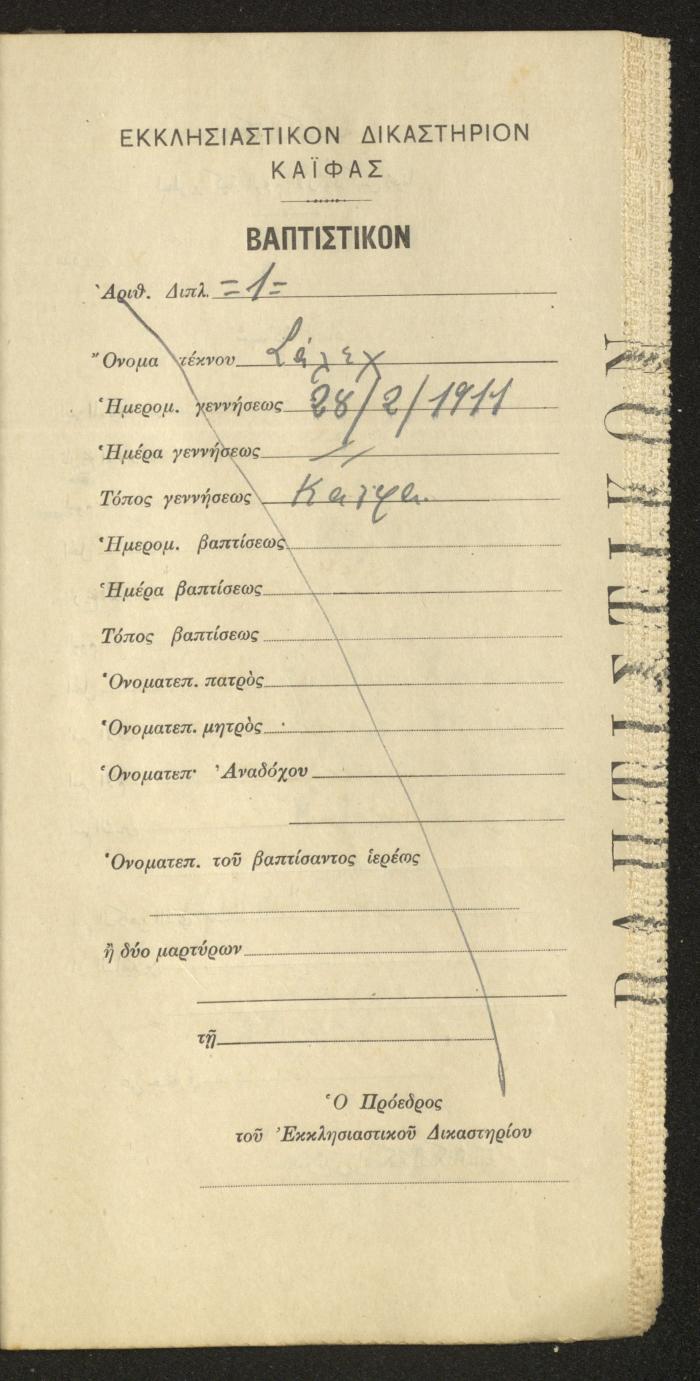 ΕΚΚΛΗΣΙΑΣΤΙΚΟΝ ΔΙΚΑΣΤΗΡΙΟΝ
ΚΑΪΦΑΣ
ΒΑΠΤΙΣΤΙΚΟΝ
Ἀριθ. Διπλ. =1=
Ὄνομα τέκνου Σάλεχ
Ἡμερομ. γεννήσεως 28/2/1911
Ἡμέρα γεννήσεως
Τόπος γεννήσεως Καϊφα
Ἡμερομ. βαπτίσεως
Ἡμέρα βαπτίσεως
Τόπος βαπτίσεως
Ὀνοματεπ. πατρὸς
Ὀνοματεπ. μητρὸς
Ὀνοματεπ· Ἀναδόχου
Ὀνοματεπ. τοῦ βαπτίσαντος ἱερέως
ἢ δύο μαρτύρων
τῇ
Ὁ Πρόεδρος
τοῦ Ἐκκλησιαστικοῦ Δικαστηρίου
ΒΑΠΤΙΣΤΙΚΟΝ